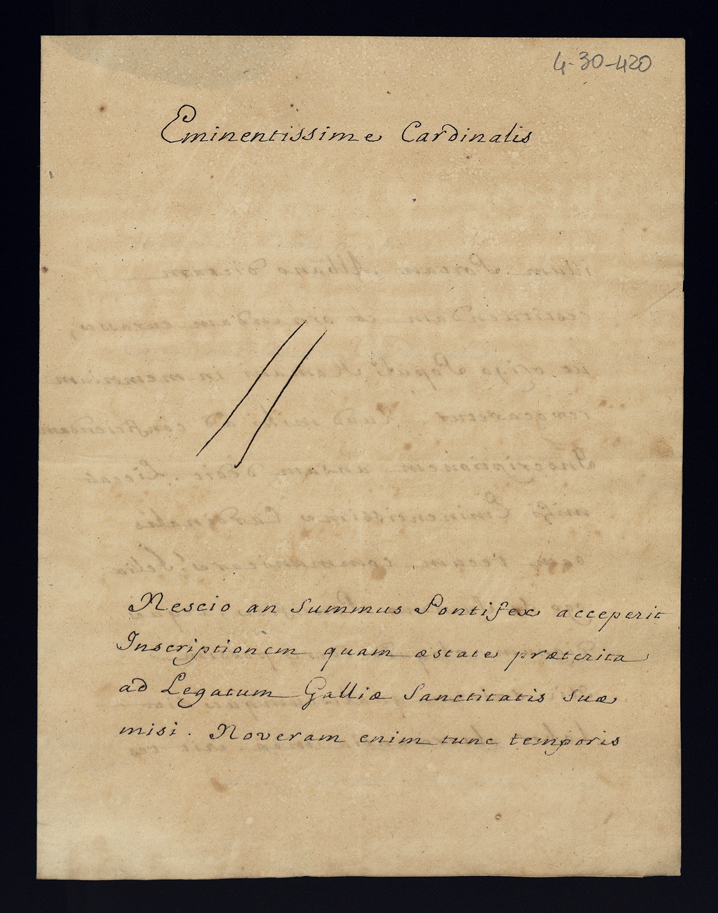 4-30-420
Eminentissime Cardinalis
Nescio an Summus Pontifex acceperit
Inscriptionem quam æstate præterita
ad Legatum Galliæ Sanctitatis Suæ
misi. Noveram enim tunc temporis